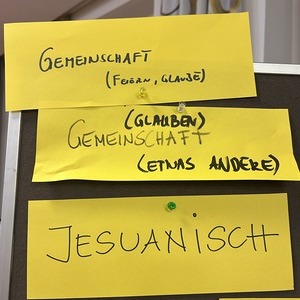 GEMEINSCHAFT
(FEIERN, GLAUBE)
(GLAUBEN)
GEMEINSCHAFT
(ETWAS ANDERE)
JESUANISCH